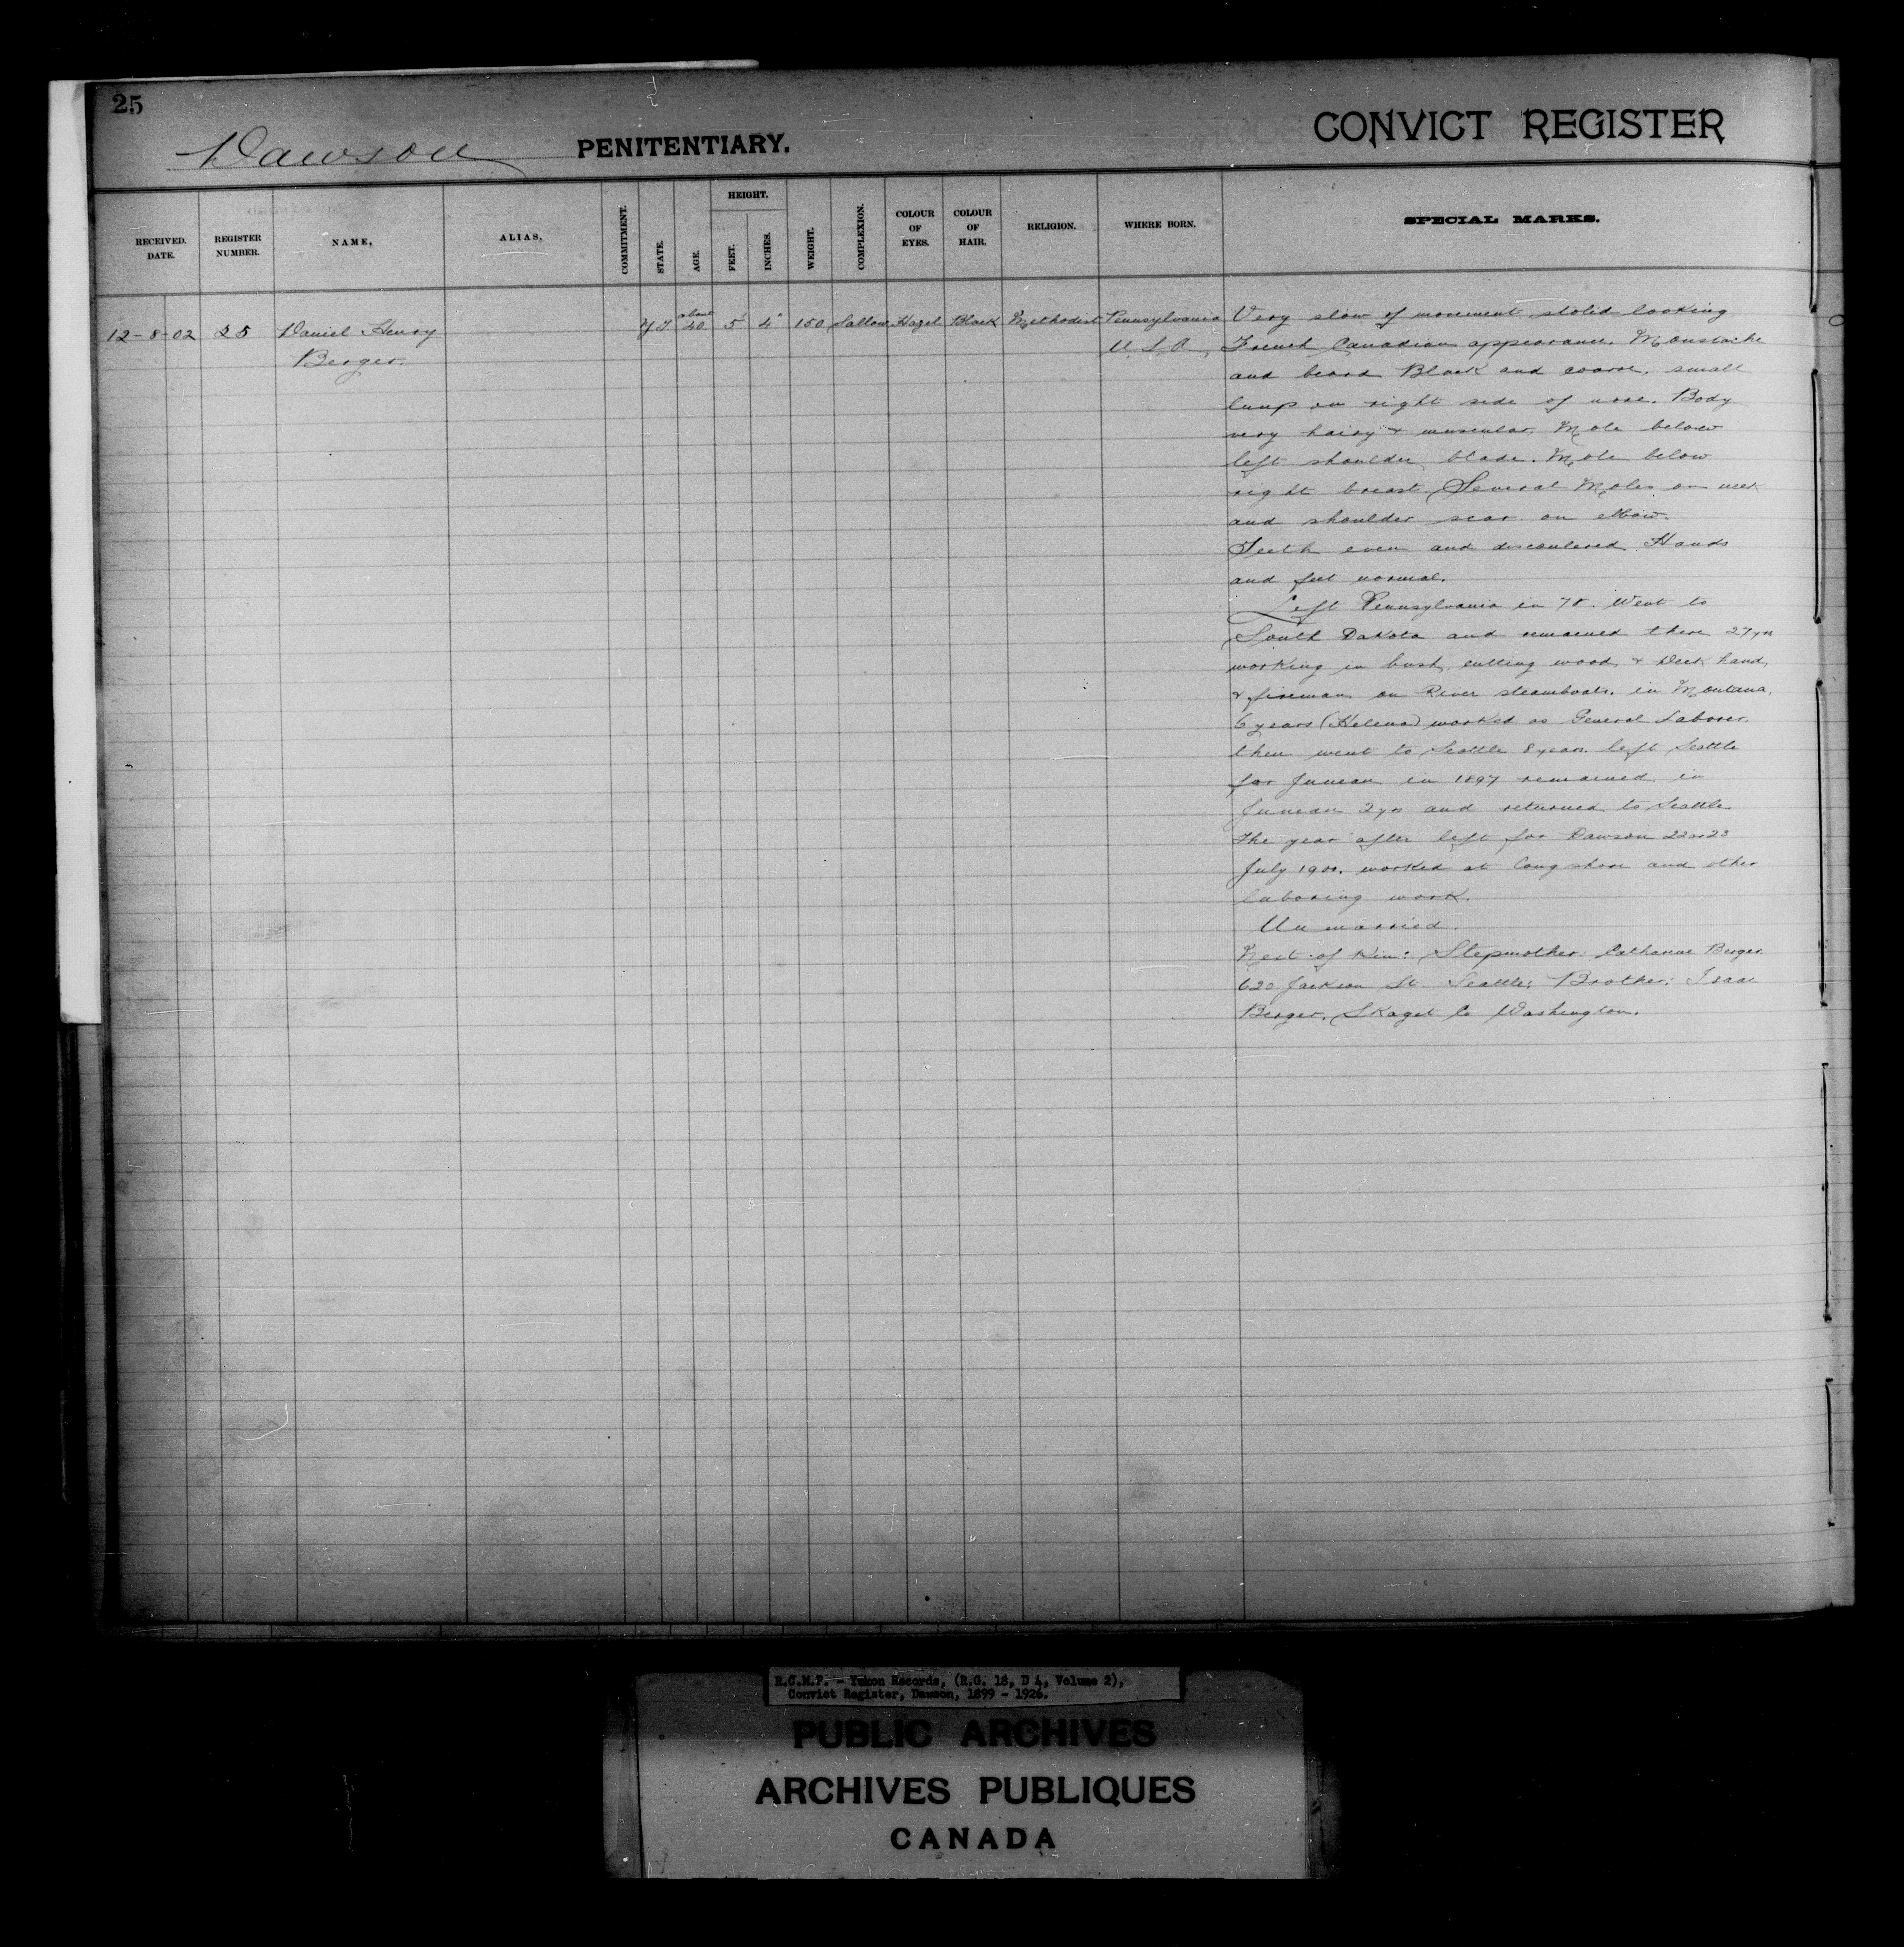 25
Dawson PENITENTIARY.
CONVICT REGISTER
RECEIVED. DATE.
REGISTER NUMBER.
NAME.
ALIAS.
COMMITMENT.
STATE.
AGE.
HEIGHT.
FEET.
INCHES.
WEIGHT.
COMPLEXION.
COLOUR OF EYES.
COLOUR OF HAIR.
RELIGION.
WHERE BORN.
SPECIAL MARKS.
12-8-02
25
Daniel Henry
Berger.
Y T
about
40.
5'
4"
150
Sallow
Hazel
Black
Methodist
Pennsylvania
U.S.A.
Very slow of movement stolid looking
French Canadian appearance. Moustache
and beard Black and coarse, small
lump on right side of nose. Body
very hairy & muscular. Mole below
left shoulder blade. Mole below
right breast. Several Moles on neck
and shoulder scar on elbow.
Teeth even and discoulered. Hands
and feet normal.
Left Pennsylvania in Went to
South Dakota and remained there 27 yrs
working in bush, cutting wood, & Deck hand,
& fireman on River steamboats. in Montana.
6 years (Helena) worked as General Laborer.
then went to Seattle 8 years. left Seattle
for Juneau in 1897 remained in
Juneau 2 yrs and returned to Seattle
The year after left for Dawson 22 or 23
July 1900. worked at Long shore and other
laboring work.
Un married.
Next of Kin: Stepmother: Catharine Berger
620 Jackson St. Seattle; Brother: Isaac
Berger, Skaget Co Washington.
R.C.M.P. - Yukon Records, (R.G. 18, D 4, Volume 2),
Convict Register, Dawson, 1899 - 1926.
PUBLIC ARCHIVES
ARCHIVES PUBLIQUES
CANADA